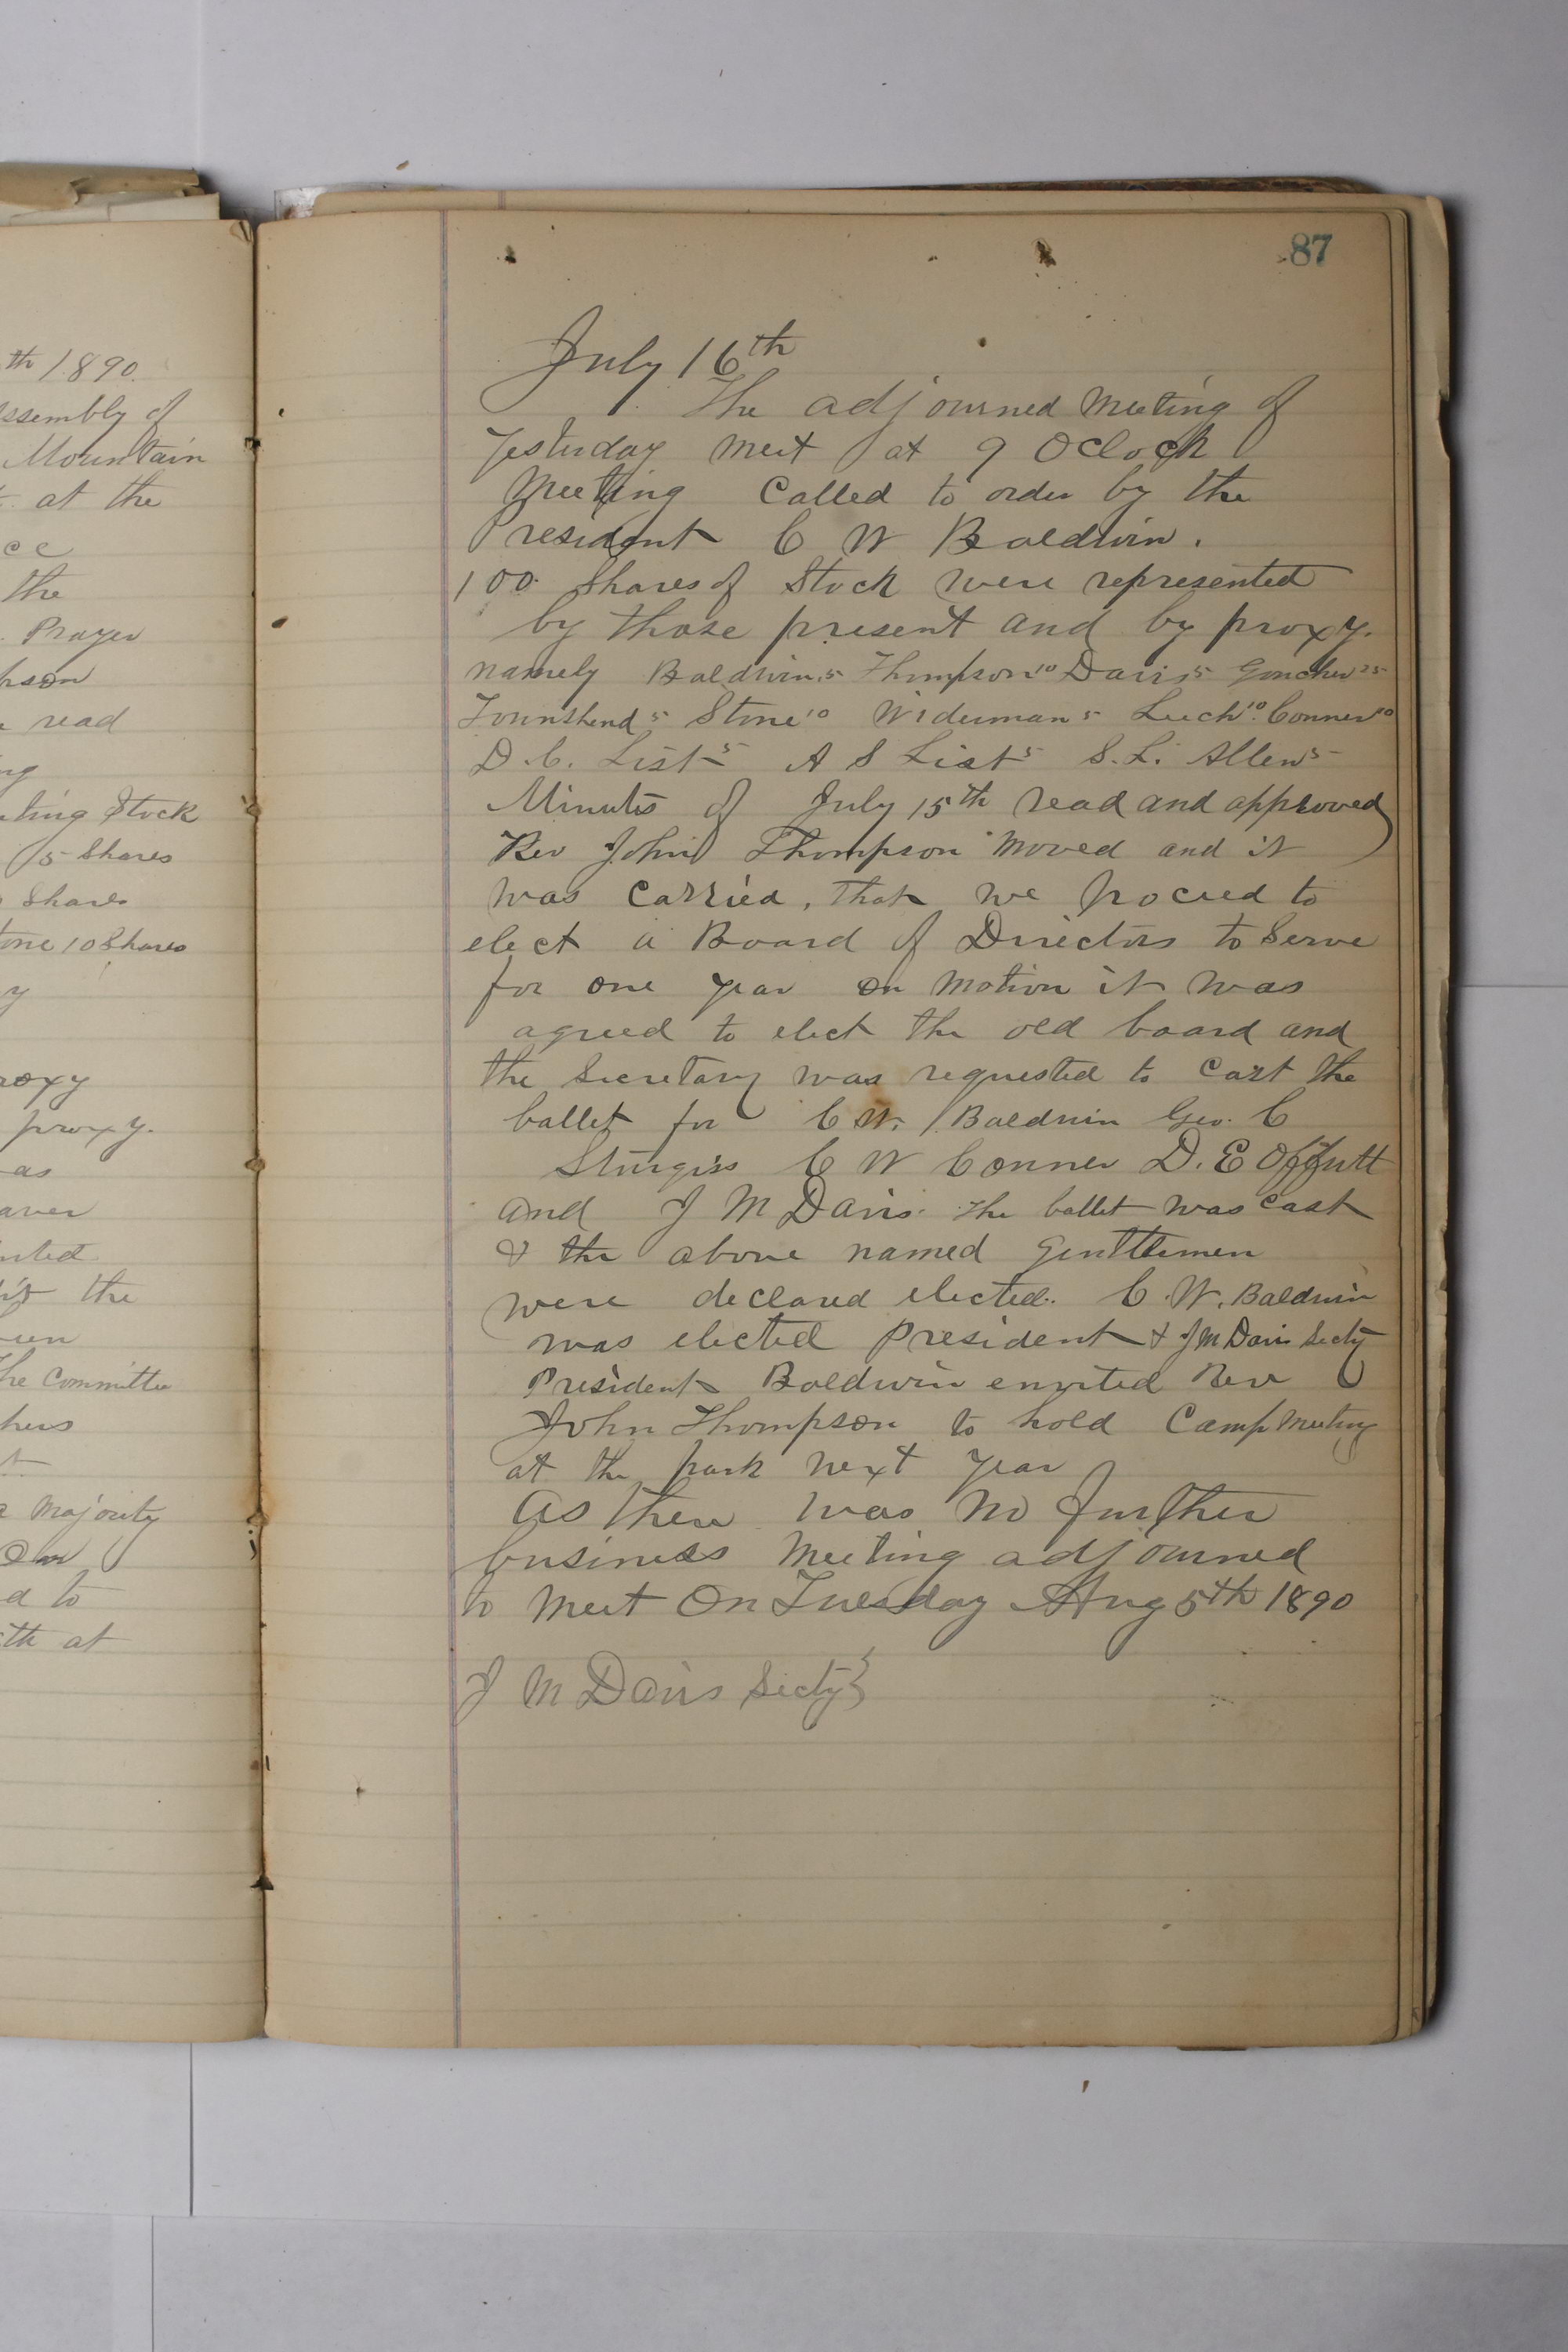 th 1890.
ssembly of
Mountain
at the
ce
the
Prayer
pson
read
ng
ting Stock
15 Shares
Shares
tone 10 Shares
y
roxy
proxy.
as
aver
nted
the
een
The Committee
hers
a Majority
On
d to
th at
87
July 16th
The adjourned Meeting of
Yesterday meet at 9 OClock
Meeting Called to order by the
President C W Baldwin.
100 Shares of Stock were represented
by those present and by proxy.
namely Baldwin 5 Thompson 10 Davis 5 Goucher 25
Tounshend 5 Stone 10 Widerman 5 Leech 10. Conner 10
D. C. List 5 A S List 5 S. L. Allen 5
Minutes of July 15th read and approved
Rev John Thompson moved and it
was carried, that we procced to
elect a Board of Directors to Serve
for one year on motion it was
agreed to elect the old board and
the Secretary was requested to Cast the
ballet for C W. Baldwin Geo. C
Sturgiss C W Conner D. E Offutt
and J M Davis. the ballet was cast
& the above named Genttlemen
were declared elected. C. W. Baldwin
was elected President & J M Davis Secty
President Baldwin envited Rev
John Thompson to hold Camp Meeting
at the park next year
as there was no further
business Meeting adjourned
to meet On Tuesday Aug 5th 1890
J M Davis Secty